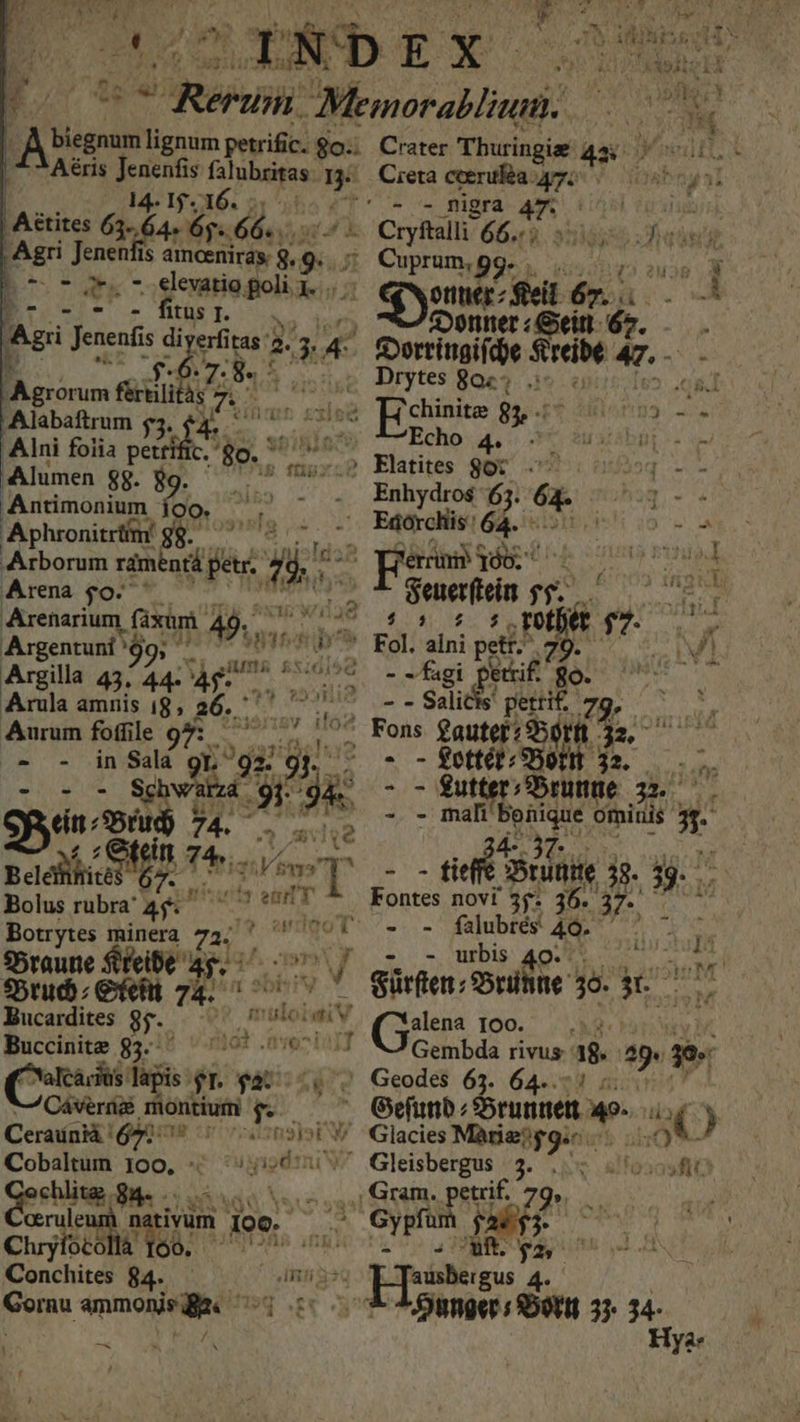 INDEX
Rerum Memorablium.
Abiegnum lignum petrific. 80.
Aëris Jenenſis ſalubritas 13.
14. 15. 16.
Aëtites 63. 64. 65. 66.
Agri Jenenſis amœnitas 8. 9.
- - - elevatio poli 1.
- - - - ſitus 1.
Agri Jenenſis diverſitas 2. 3. 4.
5. 6. 7. 8.
Agrorum fertilitas 7.
Alabaſtrum 53. 54.
Alni folia petrific. 80.
Alumen 88. 89.
Antimonium 100.
Aphronitrum 88.
Arborum ramenta petr. 79.
Arena 50.
Arenarium ſaxum 49.
Argentum 99.
Argilla 43. 44. 45.
Arula amnis 18, 26.
Aurum foſſile 97.
- - in Sala 91. 92. 93.
- - - Schwarza 93. 94.
Bein-Bruch 74.
- Stein 74.
Belemnites 67.
Bolus rubra 45.
Botrytes minera 72.
Braune Kreide 45.
Bruch-Stein 74.
Bucardites 85.
Buccinitæ 83.
Calcarius lapis 51. 52.
Cavernæ montium 5.
Ceraunia 67.
Cobaltum 100.
Cochlitæ 84.
Cœruleum nativum 100.
Chryſocolla 100.
Conchites 84.
Cornu ammonis 82.
Crater Thuringiæ 42.
Creta cœrulea 47.
- - nigra 47.
Cryſtalli 66.
Cuprum, 99.
Donner-Keil 67.
Donner-Stein 67.
Dorringiſche Kreide 47.
Drytes 80.
Echinitæ 83.
Echo 4.
Elatites 80.
Enhydros 63. 64.
Enorchis 64.
Ferrum 100.
Feuerſtein 55.
- - - - rother 57.
Fol. alni petr. 79.
- - fagi petrif. 80.
- - Salicis petrif. 79.
Fons Lauter-Born 32.
- - Lotter-Born 32.
- - Lutter-Brunne 32.
- - mali bonique ominis 33.
34. 37.
- - tieffe Brunne 38. 39.
Fontes novi 35. 36. 37.
- - ſalubres 40.
- - urbis 40.
Fürſten-Brunne 30. 31.
Galena 100.
Gembda rivus 18. 29. 30.
Geodes 63. 64.
Geſund-Brunnen 40.
Glacies Mariæ 59.
Gleisbergus 3.
Gram. petrif. 79.
Gypſum 52. 53.
- - uſt. 52.
Hausbergus 4.
Hunger-Born 33. 34.
Hya-